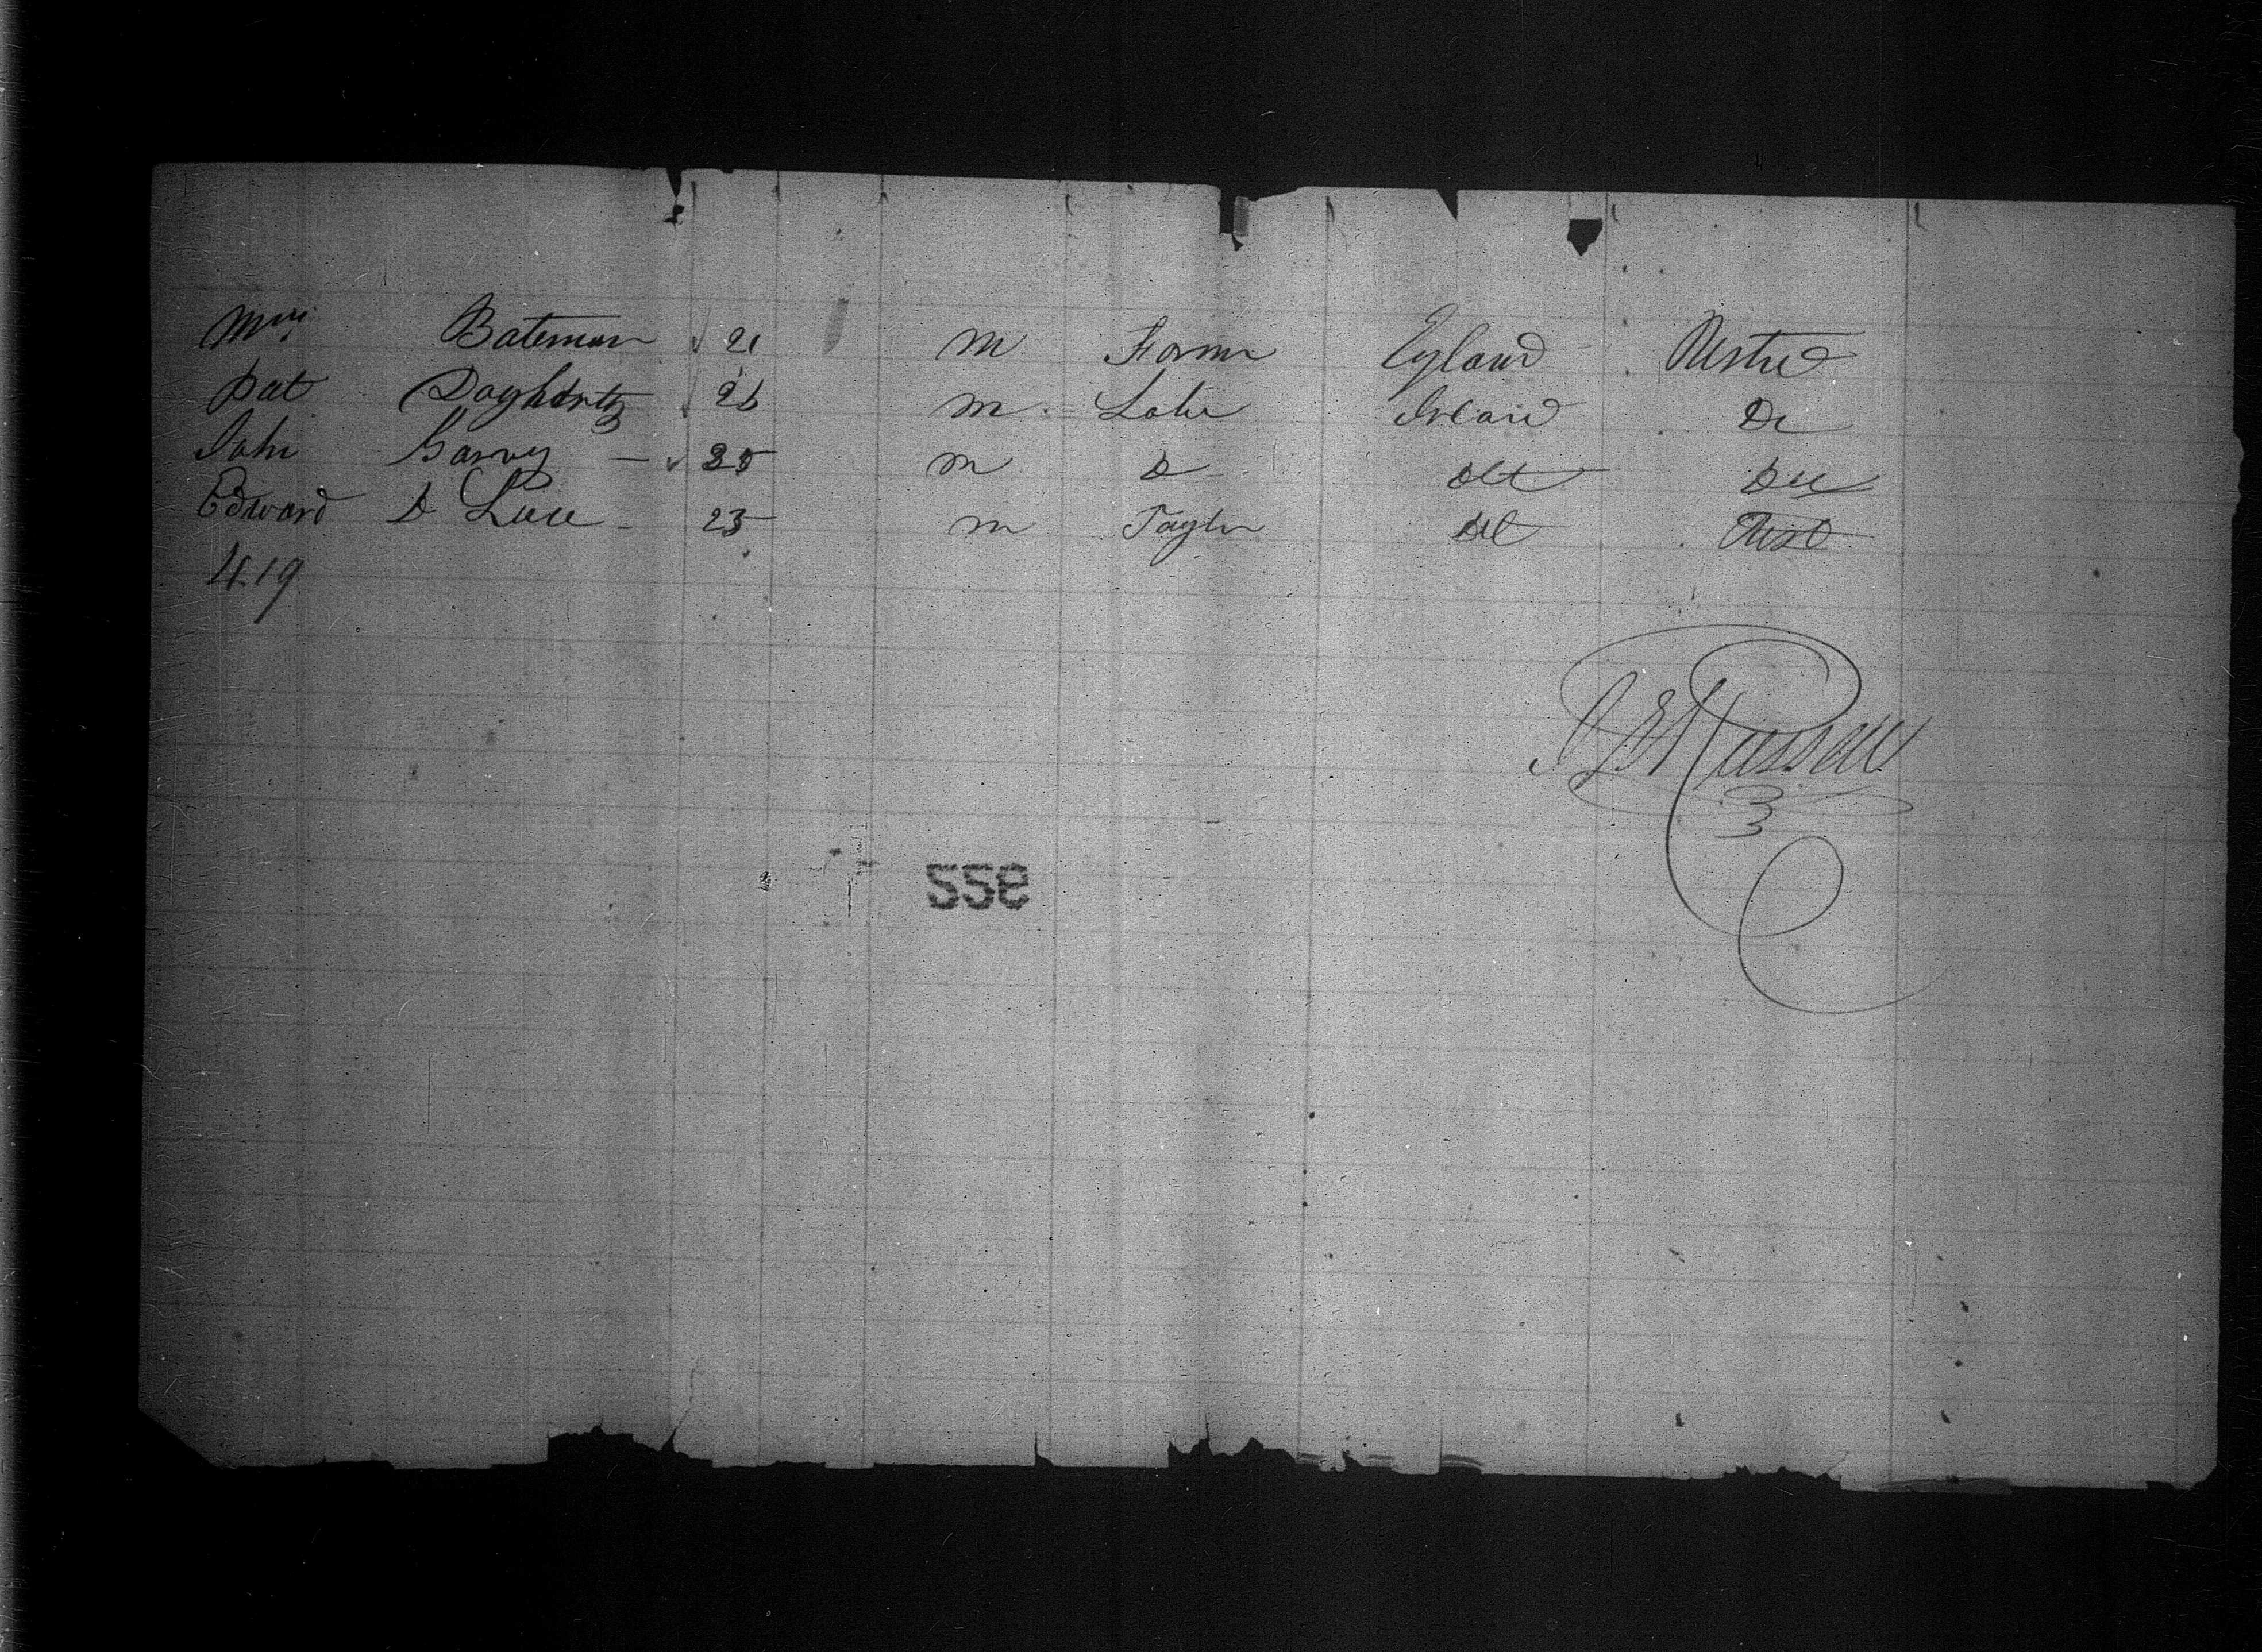 Wm Bateman 21 m Farmer England
Pat Dogherty 26 m Labr Ireland Do
John Garvy — 25 m D Do Do
Edward D 23 m Taylor Do
419
Russell
922